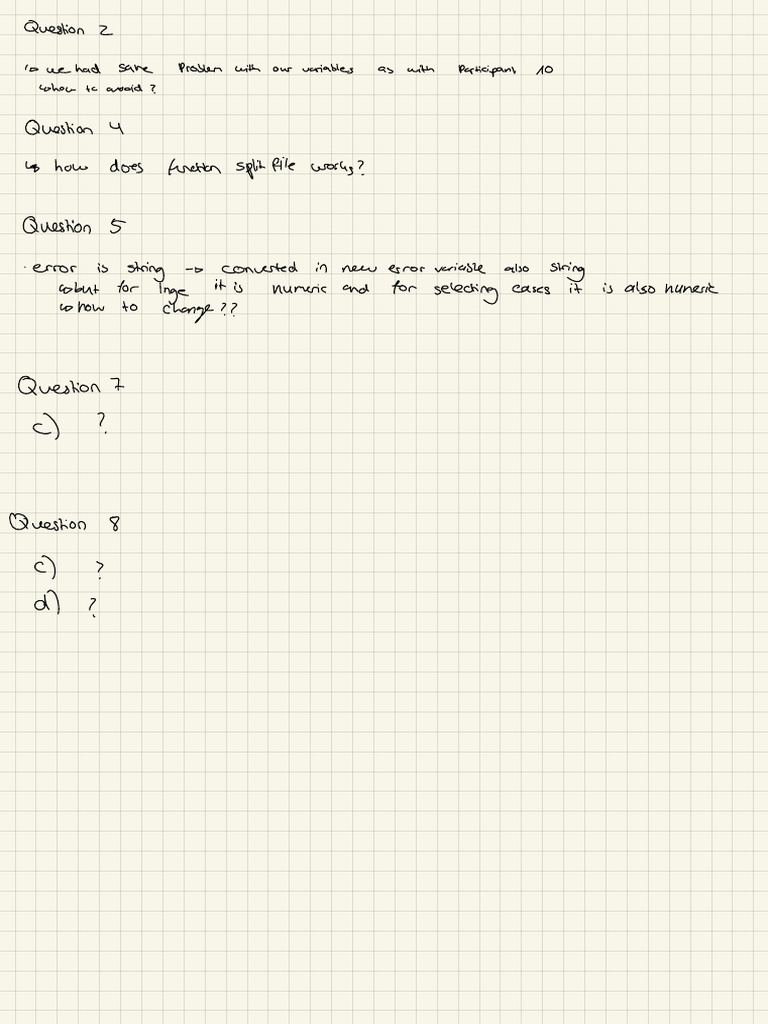 Question 2
↳ we had same Problem with our variables as with Participant 10
↳ how to avoid?
Question 4
↳ how does function split file works?
Question 5
· error is string → converted in new error variable also string
↳ but for Inge it is numeric and for selecting cases it is also numeric
↳ how to change??
Question 7
c) ?
Question 8
c) ?
d) ?